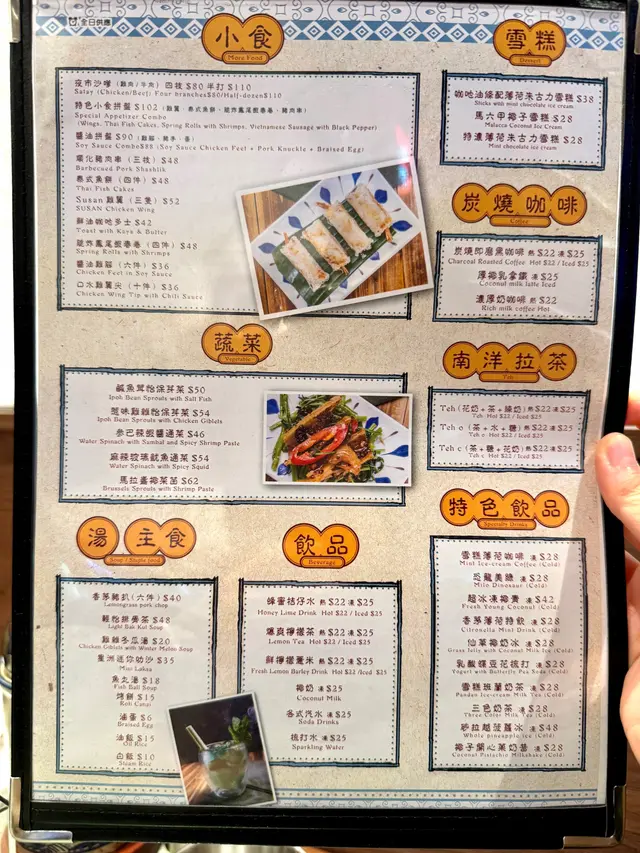 全日供應
小食
More Food
夜市沙嗲 (雞肉/牛肉) 四枝 $80 半打 $110
Satay (Chicken/Beef) Four branches$80/Half-dozen$110
特色小食拼盤 $102 (雞翼、泰式魚餅、龍炸鳳尾蝦卷卷、豬肉串)
Special Appetizer Combo
(Wings, Thai Fish Cakes, Spring Rolls with Shrimps, Vietnamese Sausage with Black Pepper)
醬油拼盤 $90 (雞腳、豬手、蛋)
Soy Sauce Combo$88 (Soy Sauce Chicken Feet + Pork Knuckle + Braised Egg)
碳化豬肉串 (三枝) $48
Barbecued Pork Shashlik
泰式魚餅 (四件) $48
Thai Fish Cakes
Susan 雞翼 (三隻) $52
SUSAN Chicken Wing
鮮油咖吔多士 $42
Toast with Kaya & Butter
龍炸鳳尾蝦卷卷 (四件) $48
Spring Rolls with Shrimps
醬油雞腳 (六件) $36
Chicken Feet in Soy Sauce
口水雞翼尖 (十件) $36
Chicken Wing Tip with Chili Sauce
蔬菜
Vegetable
鹹魚茸怡保芽菜 $50
Ipoh Bean Sprouts with Salt Fish
惹味雞雜怡保芽菜 $54
Ipoh Bean Sprouts with Chicken Giblets
參巴辣蝦醬通菜 $46
Water Spinach with Sambal and Spicy Shrimp Paste
麻辣玻璃魷魚通菜 $54
Water Spinach with Spicy Squid
馬拉盞椰菜苗 $62
Brussels Sprouts with Shrimp Paste
湯 主食
Soup / Staple food
香茅豬扒 (六件) $40
Lemongrass pork chop
輕怡排骨茶 $48
Light Bak Kut Soup
雞雜冬瓜湯 $20
Chicken Giblets with Winter Melon Soup
星洲迷你叻沙 $35
Mini Laksa
魚丸湯 $18
Fish Ball Soup
烤餅 $15
Roti Canai
滷蛋 $6
Braised Egg
油飯 $15
Oil Rice
白飯 $10
Steam Rice
飲品
Beverage
蜂蜜桔仔水 熱$22 凍$25
Honey Lime Drink Hot $22 / Iced $25
爆爽檸檬茶 熱$22 凍$25
Lemon Tea Hot $22 / Iced $25
鮮檸檬薏米 熱$22 凍$25
Fresh Lemon Barley Drink Hot $22 /Iced $25
椰奶 凍$25
Coconut Milk
各式汽水 凍$25
Soda Drinks
梳打水 凍$25
Sparkling Water
雪糕
Dessert
咖吔油條配薄荷朱古力雪糕 $38
Sticks with mint chocolate ice cream
馬六甲椰子雪糕 $28
Malacca Coconut Ice Cream
特濃薄荷朱古力雪糕 $28
Mint chocolate ice cream
炭燒咖啡
Coffee
炭燒即磨黑咖啡 熱$22 凍$25
Charcoal Roasted Coffee Hot $22 / Iced $25
厚椰乳拿鐵 凍$25
Coconut milk latte Iced
濃厚奶咖啡 熱$22
Rich milk coffee Hot
南洋拉茶
Teh
Teh (花奶+茶+煉奶) 熱$22 凍$25
Teh Hot $22 / Iced $25
Teh o (茶+水+糖) 熱$22 凍$25
Teh o Hot $22 / Iced $25
Teh c (茶+糖+花奶) 熱$22 凍$25
Teh c Hot $22 / Iced $25
特色飲品
Specialty Drinks
雪糕薄荷咖啡 凍 $28
Mint Ice-cream Coffee (Cold)
恐龍美祿 凍 $28
Milo Dinosaur (Cold)
超冰凍椰青 凍 $42
Fresh Young Coconut (Cold)
香茅薄荷特飲 凍 $28
Citronella Mint Drink (Cold)
仙草椰奶冰 凍 $28
Grass Jelly with Coconut Milk Ice (Cold)
乳酸蝶豆花梳打 凍 $28
Yogurt with Butterfly Pea Soda (Cold)
雪糕班蘭奶茶 凍 $28
Pandan Ice-cream Milk Tea (Cold)
三色奶茶 凍 $28
Three Color Milk Tea (Cold)
砂拉越菠蘿冰 凍 $48
Whole pineapple ice (Cold)
椰子開心菓奶昔 凍 $28
Coconut Pistachio Milkshake (Cold)